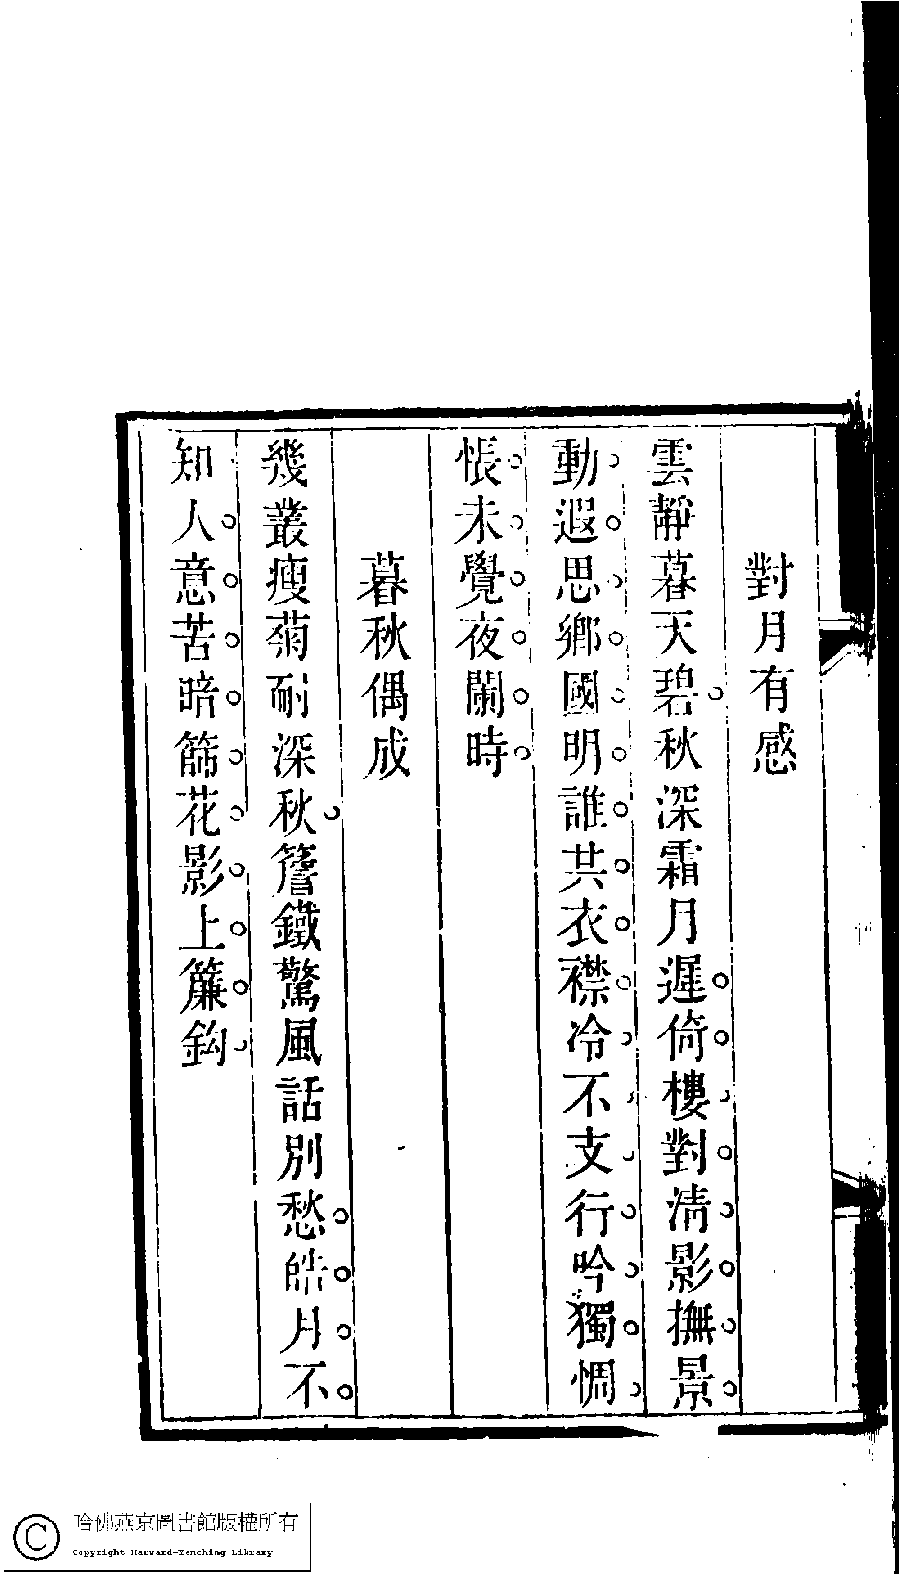 對月有感
雲靜暮天碧秋深霜月遲倚樓對淸影撫景
動遐思鄉國明誰共衣襟冷不支行吟獨惆
悵未覺夜闌時
暮秋偶成
幾叢瘦菊耐深秋簷鐵驚風話別愁皓月不
知人意苦暗篩花影上簾鈎
哈佛燕京圖書館版權所有
Copyright Harvard-Yenching Library